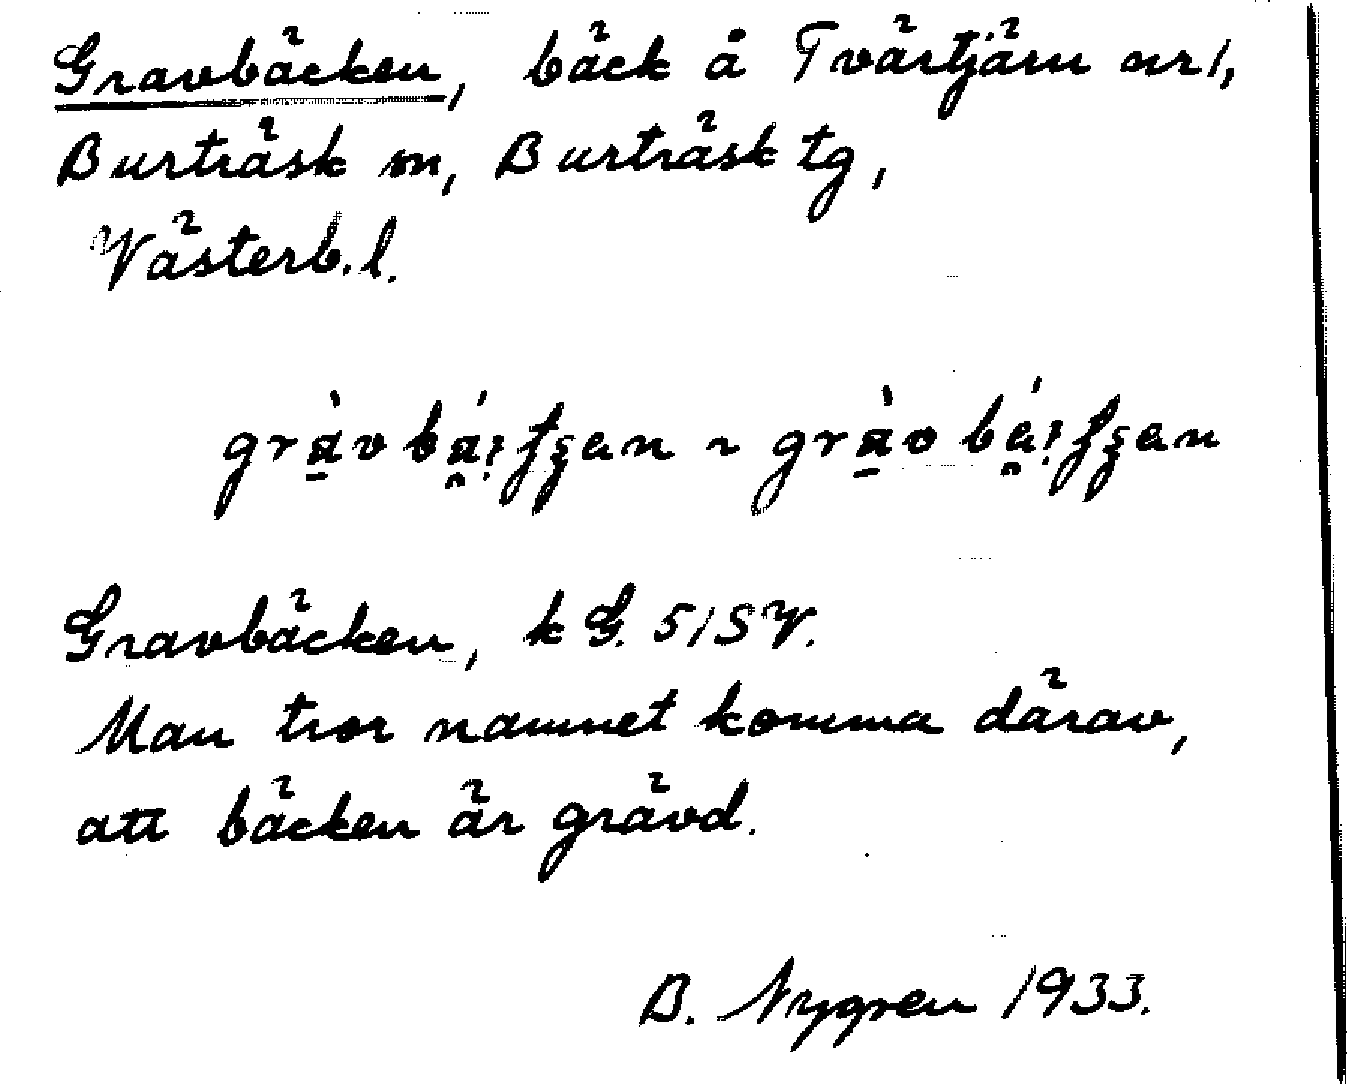 Gravbäcken, bäck å Tvärtjärn nr 1,
Burträsk sn, Burträsk tg,
Västerb. l.
Gravbäcken, k G. 51 SV.
Man tror namnet komma därav,
att bäcken är grävd.
B. Nygren 1933.